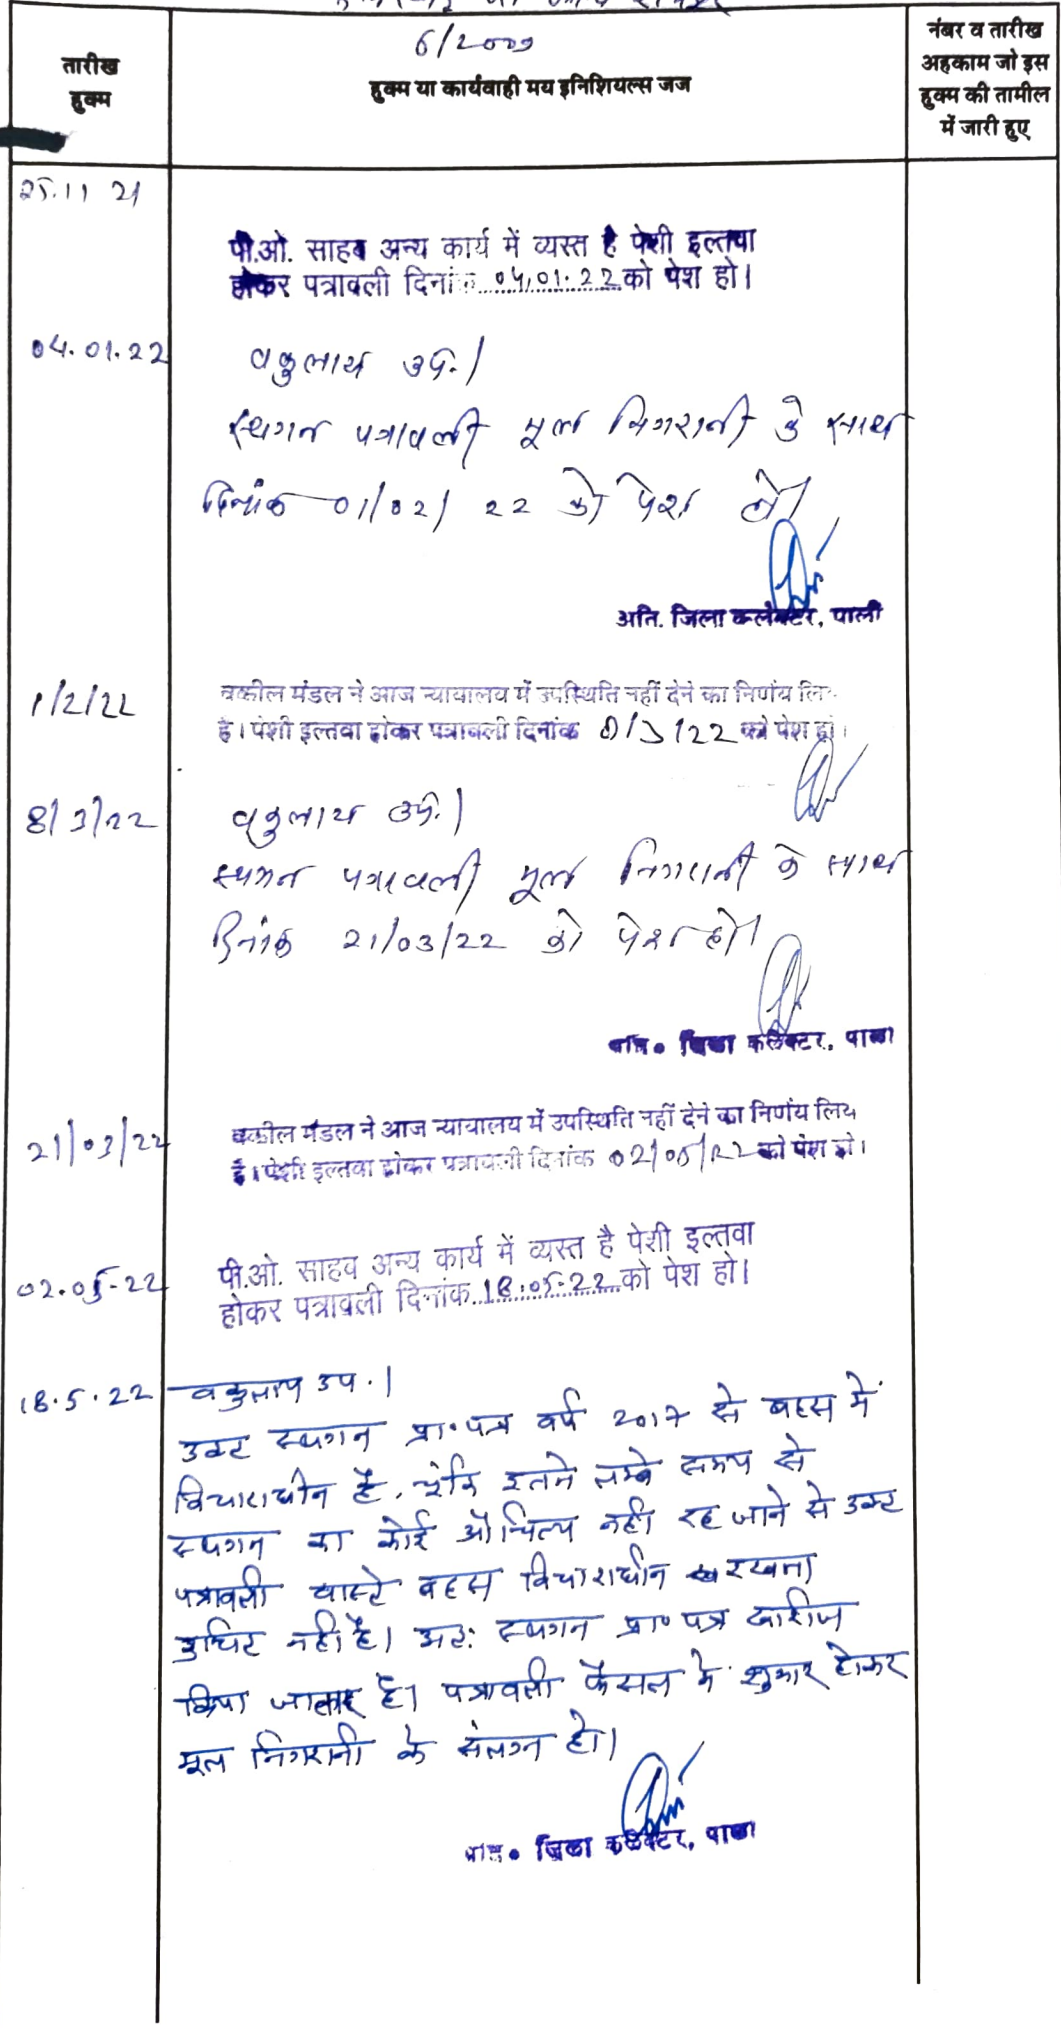 6/2009
तारीख
हुक्म
हुक्म या कार्यवाही मय इनिशियल्स जज
नंबर व तारीख
अहकाम जो इस
हुक्म की तामील
में जारी हुए
25.11 21
पी.ओ. साहब अन्य कार्य में व्यस्त है पेशी इल्तवा
होकर पत्रावली दिनांक 04.01.22 को पेश हो।
04.01.22
वकुलाय उप.।
स्थगन पत्रावली मूल निगरानी के साथ
दिनांक 01/02/22 को पेश हो।
अति. जिला कलेक्टर, पाली
1/2/22
वकील मंडल ने आज न्यायालय में उपस्थिति नहीं देने का निर्णय लि
है। पेशी इल्तवा होकर पत्रावली दिनांक 8/3/22 को पेश हो।
8/3/22
वकुलाय उप.।
स्थगन पत्रावली मूल निगरानी के साथ
दिनांक 21/03/22 को पेश हो।
अति. जिला कलेक्टर, पाली
21/03/22
वकील मंडल ने आज न्यायालय में उपस्थिति नहीं देने का निर्णय लिय
है। पेशी इल्तवा होकर पत्रावली दिनांक 02/05/22 को पेश हो।
02.05-22
पी.ओ. साहब अन्य कार्य में व्यस्त है पेशी इल्तवा
होकर पत्रावली दिनांक 18.05.22 को पेश हो।
18.5.22
वकुलाय उप.।
उक्त स्थगन प्रा.पत्र वर्ष 2017 से बहस में
विचाराधीन है. चूंकि इतने लम्बे समय से
स्थगन का कोई औचित्य नहीं रह जाने से उक्त
पत्रावली वास्ते बहस विचाराधीन रखना
उचित नहीं है। अतः स्थगन प्रा० पत्र खारीज
किया जाता है। पत्रावली फैसल में शुमार होकर
मूल निगरानी के संलग्न हो।
अति. जिला कलेक्टर, पाली